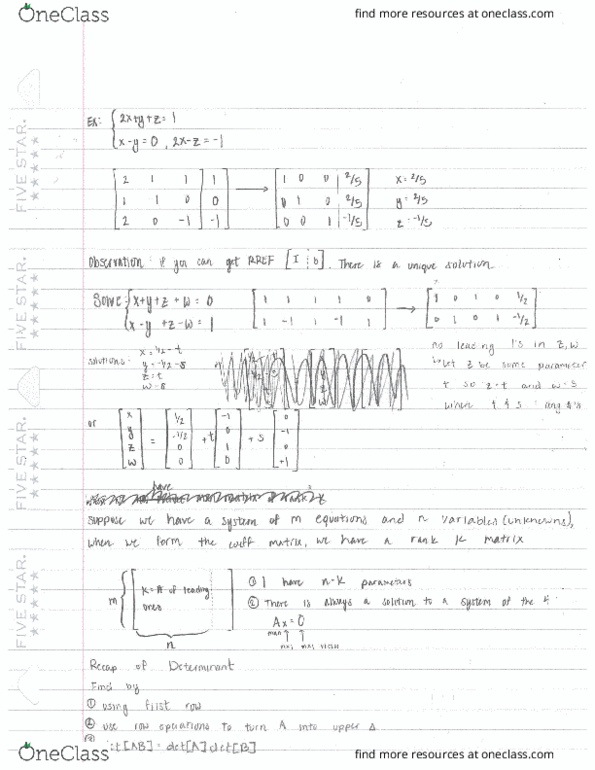 OneClass
find more resources at oneclass.com
Ex: { 2x+y+z=1
x-y=0, 2x-z=-1
[ 2 1 1 | 1 ] → [ 1 0 0 | 2/5 ] x=2/5
[ 1 1 0 | 0 ] [ 0 1 0 | 2/5 ] y=2/5
[ 2 0 -1 | -1 ] [ 0 0 1 | -1/5 ] z=-1/5
Observation: if you can get RREF [ I ⋮ b ]. There is a unique solution
Solve: { x+y+z+w=0 [ 1 1 1 1 0 ] → [ 1 0 1 0 1/2 ]
x-y+z-w=1 [ 1 -1 1 -1 1 ] [ 0 1 0 1 -1/2 ]
solutions: x=1/2-t
y=-1/2-s
z=t
w=s
no leading 1's in z, w
let z be some parameter
t so z=t and w=s
when t & s any #'s
or [ x ] = [ 1/2 ] + t [ -1 ] + s [ 0 ]
[ y ] [ -1/2 ] [ 0 ] [ -1 ]
[ z ] [ 0 ] [ 1 ] [ 0 ]
[ w ] [ 0 ] [ 0 ] [ +1 ]
have
suppose we have a system of m equations and n variables (unknowns),
when we form the coeff matrix, we have a rank k matrix
m { [ k=# of leading
ones ]
n
① I have n-k parameters
② There is always a solution to a system of the
Ax=0
mxn
Recap of Determinant
Find by
① using first row
② use row operations to turn A into upper Δ
[AB]=det[A]det[B]
OneClass
find more resources at oneclass.com
FIVE STAR.
FIVE STAR.
FIVE STAR.
FIVE STAR.